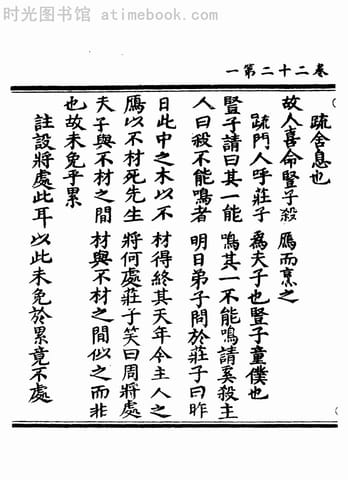 时光图书馆 - atimebook.com
卷二十二第一
疏舍息也
故人喜命豎子殺鴈而烹之
疏門人呼莊子爲夫子也豎子童僕也
豎子請曰其一能鳴其一不能鳴請奚殺主
人曰殺不能鳴者明日弟子問於莊子曰昨
日此中之木以不材得終其天年今主人之
鴈以不材死先生將何處莊子笑曰周將處
夫子與不材之間材與不材之間似之而非
也故未免乎累
註設將處此耳以此未免於累竟不處